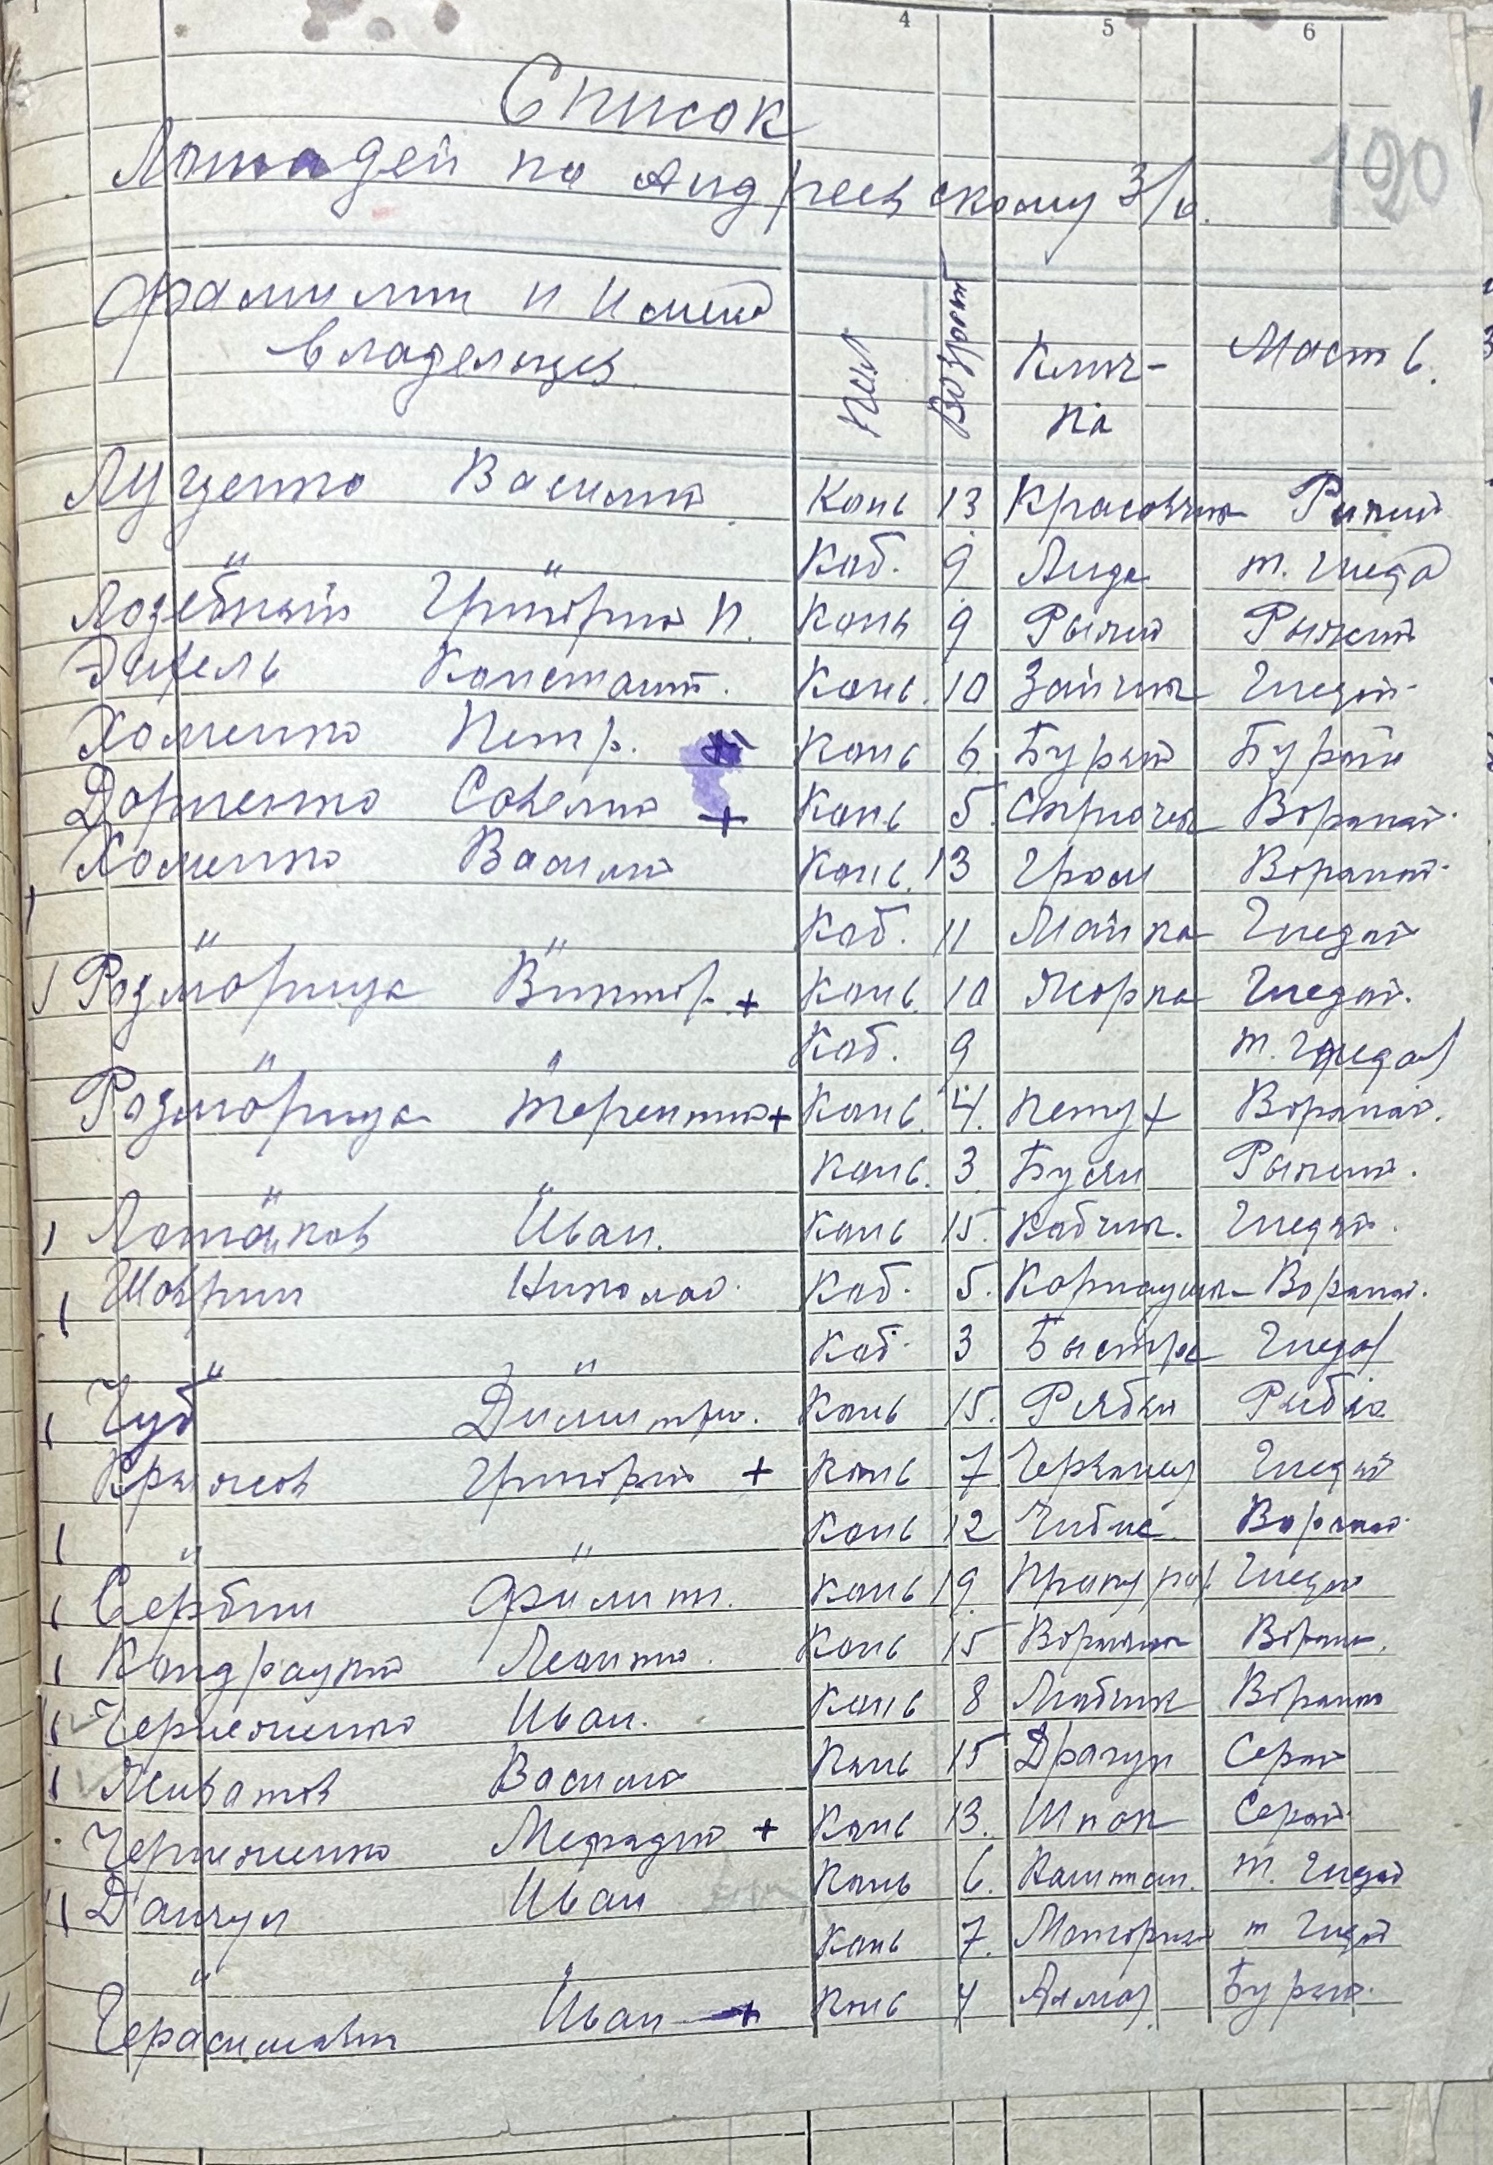 4 5 6
Список
Лошадей по Андреевскому З/о.
120
Фамилии и Имена владельцев
Пол Возраст Кличка Масть.
Луценко Василий Конь 13 Красавчик Рижий
" " Коб. 9 Лида т. Гнедая
Лозебный Григорий П. Конь 9 Рыжий Рыжий
Констант. Конь. 10 Зайчик Гнедой
Хоменко Петр. + Конь 6. Бурый Бурый
Савелий + Конь 5. Вораной
Хоменко Василий Конь. 13 Гром Вораной
" " Коб. 11 Майка Гнедой
Виктор + Конь. 10 Жорка Гнедой.
" " Коб. 9 т. Гнедой
Терентий + Конь. 4. Петух Вораной.
" " Конь. 3. Рыжий.
Лошаков Иван. Конь 15. Кобчик. Гнедой.
Шаврин Николай. Коб. 5. Вораной.
" " Коб. 3 Быстра Гнедой
Чуб Димитри. Конь 15. Рябко
Крыжов Григорий + Конь 7 Гнедой
" " Конь 12 Чибис Вораной
Сербин Филип. Конь 19. Гнедой
Кондрацкий Леонтий. Конь 15 Воран.
Черненченко Иван. Конь 8 Любчик Вораной
Живатов Василий Конь 15 Драгун Серый
Черненченко Мефодий + Конь 13. Шпак Серый
Данчул Иван Конь 6. Каштан. т. Гнедой
" " Конь 7. т Гнедой
Герасимович Иван + Конь 4 Алмаз. Бурый.